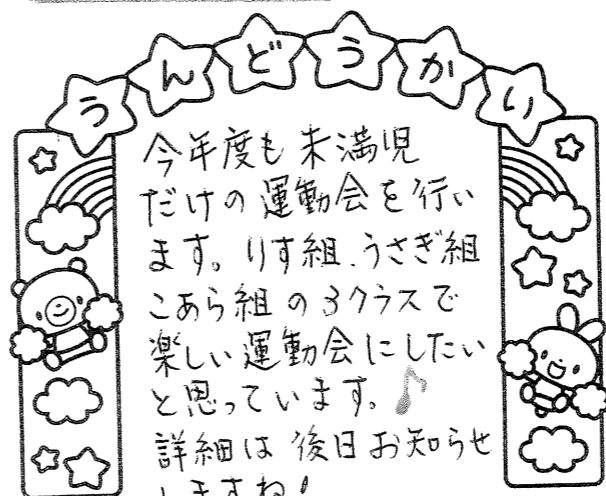 うんどうかい
今年度も未満児
だけの運動会を行い
ます。りす組、うさぎ組
こあら組の3クラスで
楽しい運動会にしたい
と思っています。♪
詳細は後日お知らせ
しますね!